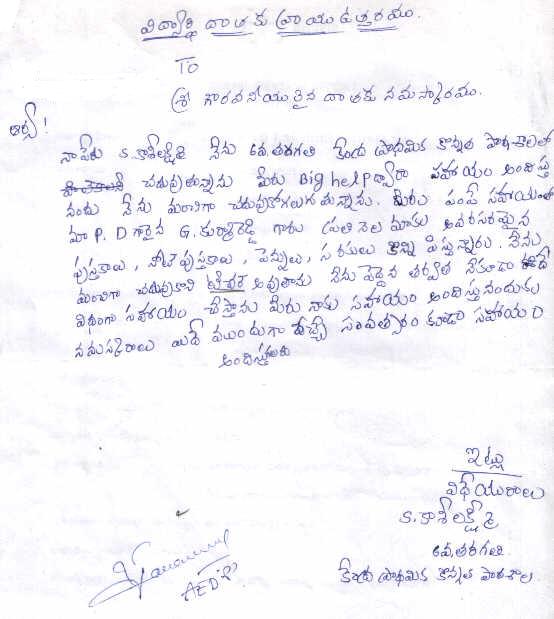 విద్యార్థి దాతకు వ్రాయు ఉత్తరము.
To
శ్రీ గౌరవనీయులైన దాతకు నమస్కారము.
డార్లీ!
నా పేరు ఽ.కాశీలక్ష్మి నేను 6వ.తరగతి కేంద్ర ప్రాథమిక కొన్నత పాఠశాలలో
చదువుతున్నాను మీరు Big help ద్వారా సహాయం అందిస్తు
నందు నేను మంచిగా చదువుకోగలుగుతున్నాను. మీరు పంపే సహాయంతో
మా P.D గారైన G. గారు ప్రతి నెల మాకు అవసరమైన
పుస్తకాలు, నోట్ పుస్తకాలు, పెన్నులు, కొన్ని పిస్తున్నారు. నేను
మంచిగా చదువుకొని టీచర్ అవుతాను నేను పెద్దైన తర్వాత నేకూడా ఇదే
విధంగా సహాయం చేస్తాను మీరు నాకు సహాయం అందిస్తునందుకు
నమస్కారాలు మీరే ముందుగా వచ్చే సంవత్సరం కూడా సహాయం
అందిస్తారు
ఇట్లు
విధేయురాలు
కాశీలక్ష్మి
6వ.తరగతి.
కేంద్ర ప్రాథమిక కొన్నత పాఠశాల.